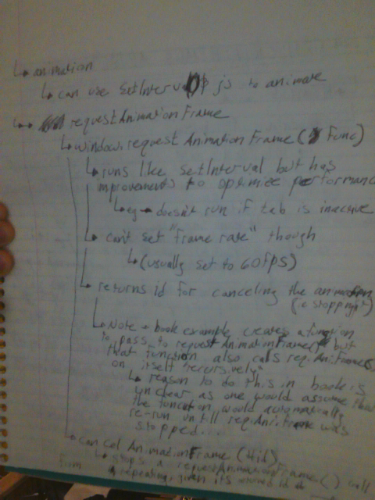 ↳ animation
↳ can use setInterval js to animate
↳ requestAnimationFrame
↳ window.requestAnimationFrame( Func)
↳ runs like setInterval but has
improvements to optimize performance
↳ eg → doesn't run if tab is inactive
↳ can't set "frame rate" though
↳ (usually set to 60fps)
↳ returns id for canceling the animation
(or stopping)
↳ Note → book example creates a function
to pass to requestAnimationFrame() but
that function also calls reqAniFrame()
on itself "recursively"
↳ reason to do this in book is
unclear as one would assume that
the function would automatically
re-run untill reqAniFrame was
stopped....
↳ stops a requestAnimationFrame() call
from repeating given its